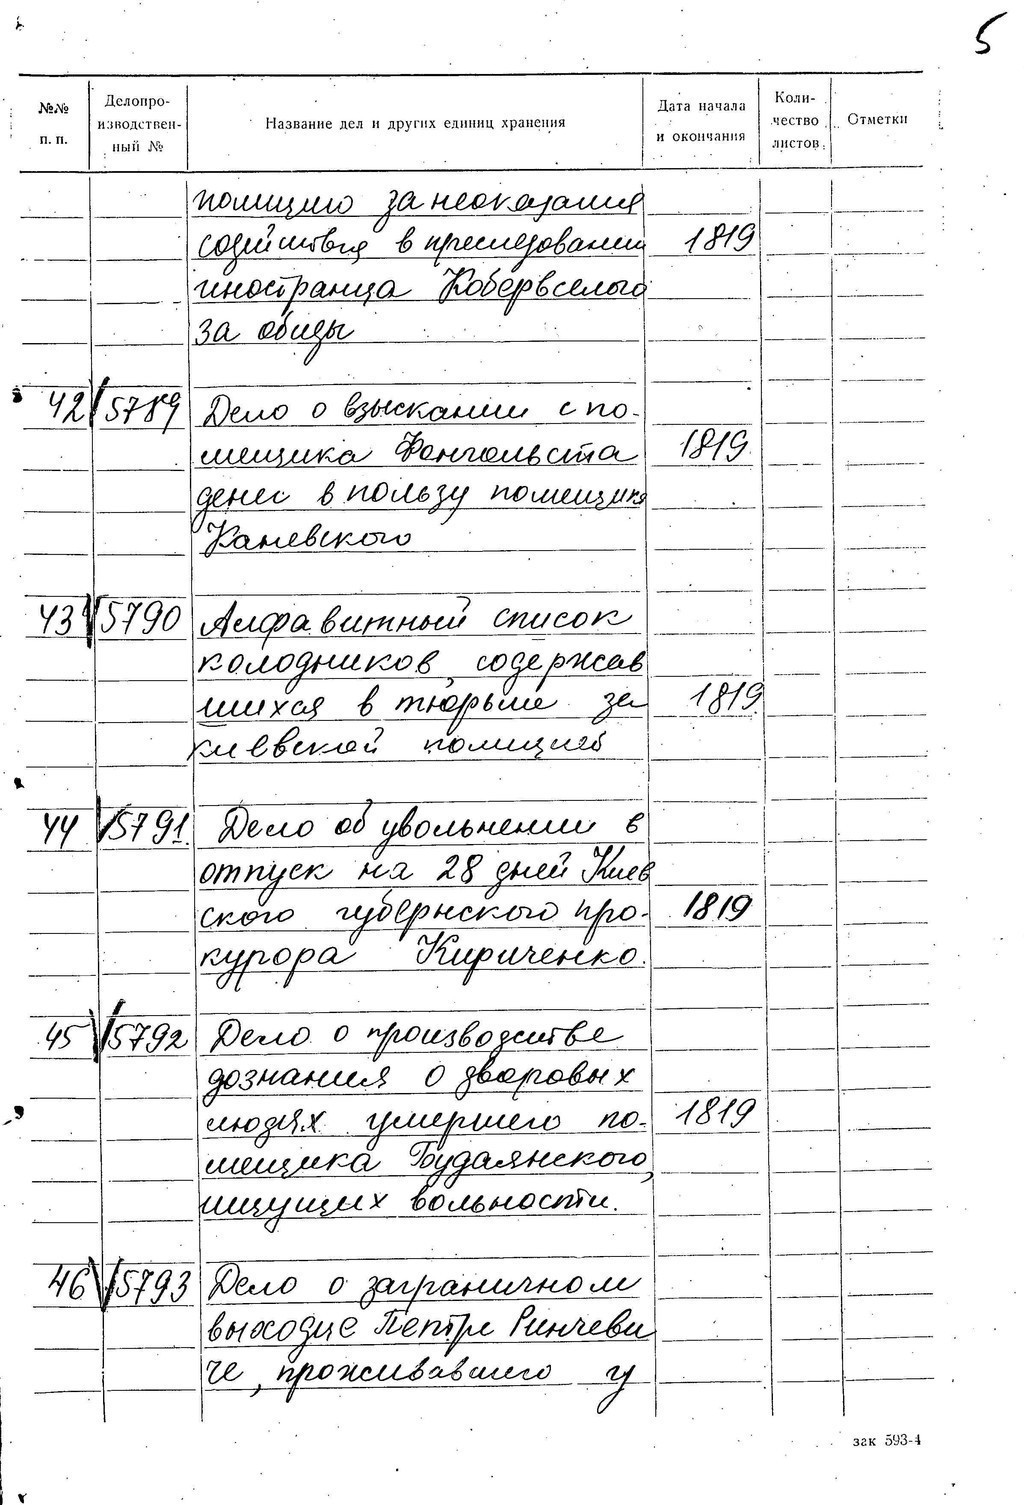 5
№№ п. п.
Делопро- изводствен- ный №
Название дел и других единиц хранения
Дата начала и окончания
Коли- чество листов
Отметки
полицию за неоказания
содействия в преследовании 1819
иностранца Кобервселого
за обиды
42 5789 Дело о взыскании с по-
мещика Фонгольста 1819
денег в пользу помещика
Каневского
43 5790 Алфавитный список
колодников, содержав
шихся в тюрьме за 1819
киевской полицией
44 5791 Дело об увольнении в
отпуск на 28 дней Киев
ского губернского про- 1819
курора Кириченко.
45 5792 Дело о производстве
дознания о дворовых
людях умершего по- 1819
мещика Будаянского,
ищущих вольности.
46 5793 Дело о заграничном
выходце Петре Ринчеви
че, проживавшего у
зак 593-4